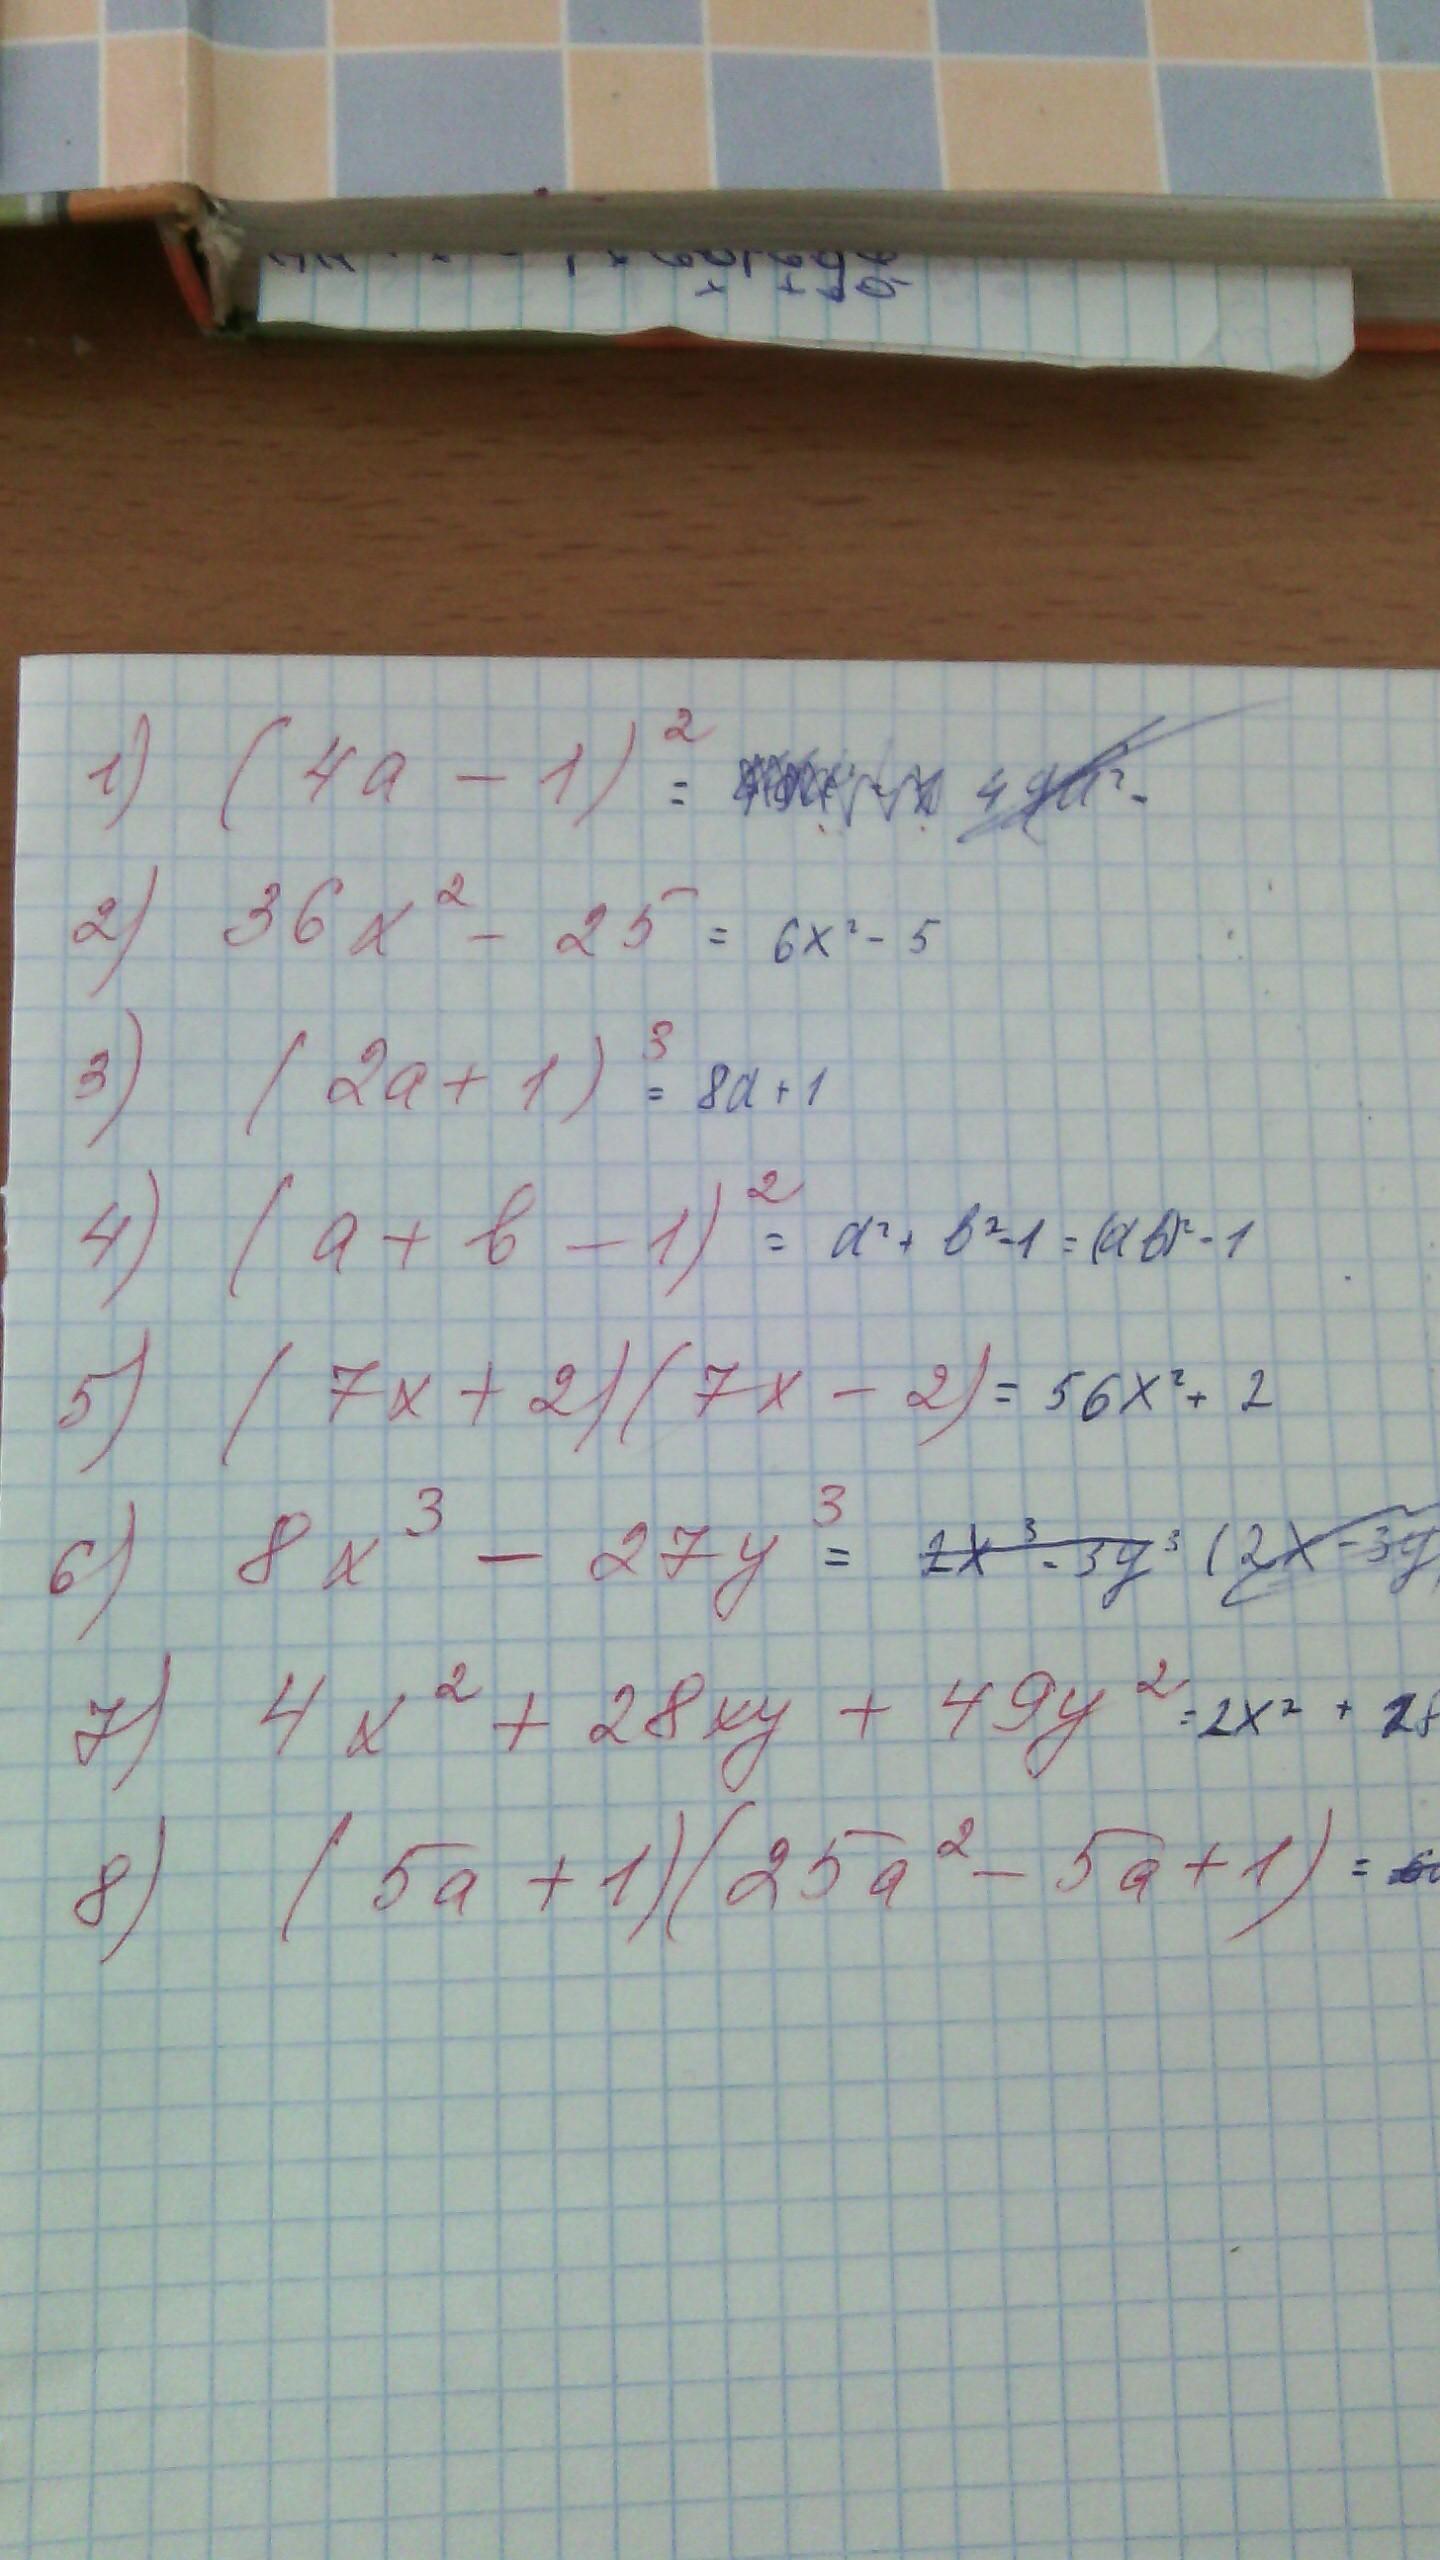 1) (4a - 1)² =
2) 36x² - 25 = 6x² - 5
3) (2a + 1)³ = 8a + 1
4) (a + b - 1)² = a² + b² - 1 = (ab)² - 1
5) (7x + 2)(7x - 2) = 56x² + 2
6) 8x³ - 27y³ = 2x³ - 3y³ (2x - 3y)
7) 4x² + 28xy + 49y² = 2x² + 28
8) (5a + 1)(25a² - 5a + 1) =